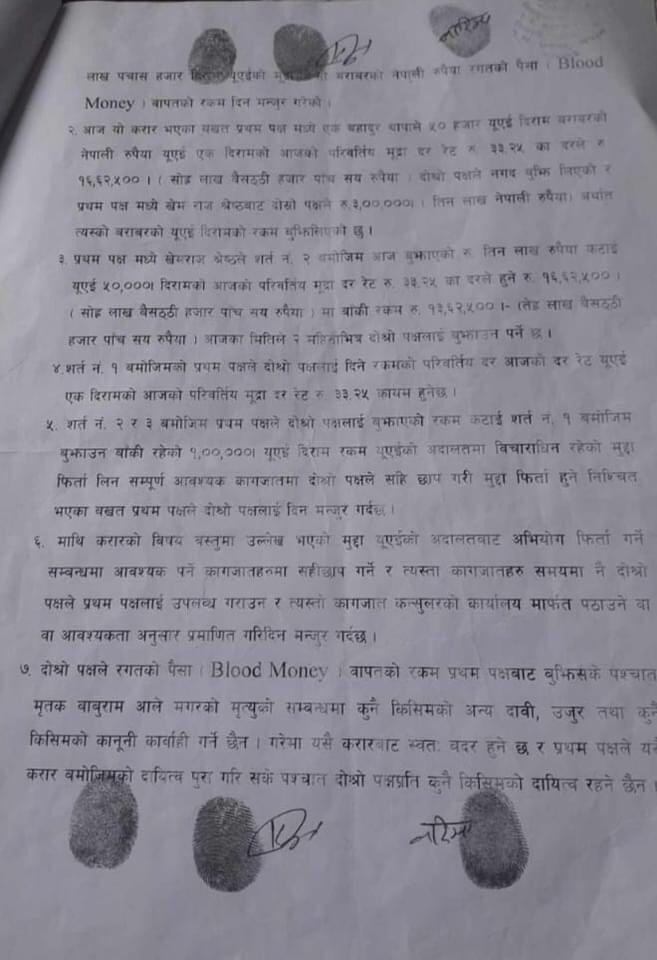 नारिमा
लाख पचास हजार दिराम यूएईको बराबरको नेपाली रुपैया रगतको पैसा ( Blood
Money ) वापतको रकम दिन मन्जुर गरेको ।
२. आज यो करार भएका बखत प्रथम पक्ष मध्ये एक बहादुर थापाले ५० हजार यूएई दिराम बराबरको
नेपाली रुपैया यूएई एक दिरामको आजको परिवर्तिय मूद्रा दर रेट रु. ३३.२५ का दरले रु
१६,६२,५०० । ( सोह्र लाख बैसठ्ठी हजार पांच सय रुपैया ) दोश्रो पक्षले नगद बुझि लिएको र
प्रथम पक्ष मध्ये खेम राज श्रेष्ठबाट दोस्रो पक्षले रु.३,००,०००। ( तिन लाख नेपाली रुपैया) अर्थात
त्यस्को बराबरको यूएई दिरामको रकम बुझिसिएको छ ।
३. प्रथम पक्ष मध्ये खेमराज श्रेष्ठले शर्त नं. २ बमोजिम आज बुझाएको रु. तिन लाख रुपैया कटाई
यूएई ५०,०००। दिरामको आजको परिवर्तिय मूद्रा दर रेट रु. ३३.२५ का दरले हुने रु. १६,६२,५०० ।
( सोह्र लाख बैसठ्ठी हजार पांच सय रुपैया ) मा बाँकी रकम रु. १३,६२,५०० ।- (तेह्र लाख बैसठ्ठी
हजार पांच सय रुपैया ) आजका मितिले २ महिनाभित्र दोश्रो पक्षलाई बुझाउन पर्ने छ ।
४.शर्त नं. १ बमोजिमको प्रथम पक्षले दोश्रो पक्षलाई दिने रकमको परिवर्तिय दर आजको दर रेट यूएई
एक दिरामको आजको परिवर्तिय मूद्रा दर रेट रु. ३३.२५ कायम हुनेछ ।
५. शर्त नं. २ र ३ बमोजिम प्रथम पक्षले दोश्रो पक्षलाई बुझाएको रकम कटाई शर्त नं. १ बमोजिम
बुझाउन बाँकी रहेको १,००,०००। यूएई दिराम रकम यूएईको अदालतमा विचाराधिन रहेको मुद्दा
फिर्ता लिन सम्पूर्ण आवश्यक कागजातमा दोश्रो पक्षले सहि छाप गरी मुद्दा फिर्ता हुने निश्चित
भएका बखत प्रथम पक्षले दोश्रो पक्षलाई दिन मन्जुर गर्दछ ।
६. माथि करारको विषय वस्तुमा उल्लेख भएको मुद्दा यूएईको अदालतबाट अभियोग फिर्ता गर्ने
सम्बन्धमा आवश्यक पर्ने कागजातहरुमा सहीछाप गर्ने र त्यस्ता कागजातहरु समयमा नै दोश्रो
पक्षले प्रथम पक्षलाई उपलब्ध गराउन र त्यस्तो कागजात कन्सुलरको कार्यालय मार्फत पठाउने वा
वा आवश्यकता अनुसार प्रमाणित गरिदिन मन्जुर गर्दछ ।
७. दोश्रो पक्षले रगतको पैसा ( Blood Money ) वापतको रकम प्रथम पक्षबाट बुझिसके पश्चात
मृतक बाबुराम आले मगरको मृत्युको सम्बन्धमा कुनै किसिमको अन्य दावी, उजुर तथा कुनै
किसिमको कानूनी कार्वाही गर्ने छैन । गरेमा यसै करारबाट स्वतः बदर हुने छ र प्रथम पक्षले
करार बमोजिमको दायित्व पुरा गरि सके पश्चात दोश्रो पक्षप्रति कुनै किसिमको दायित्व रहने छैन ।
नारिमा